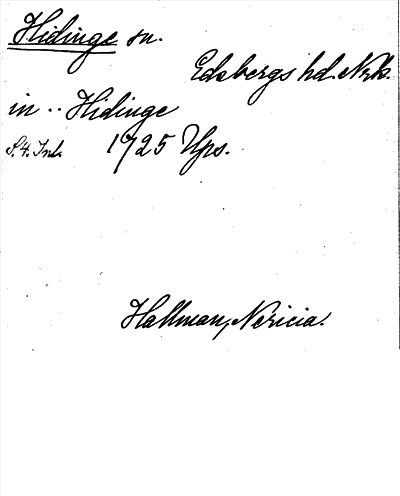 Hidinge sn.
Edsbergs hd. Nrk.
in .. Hidinge
S. 4. Inl. 1725 Ups.
Hallman, Nericia.